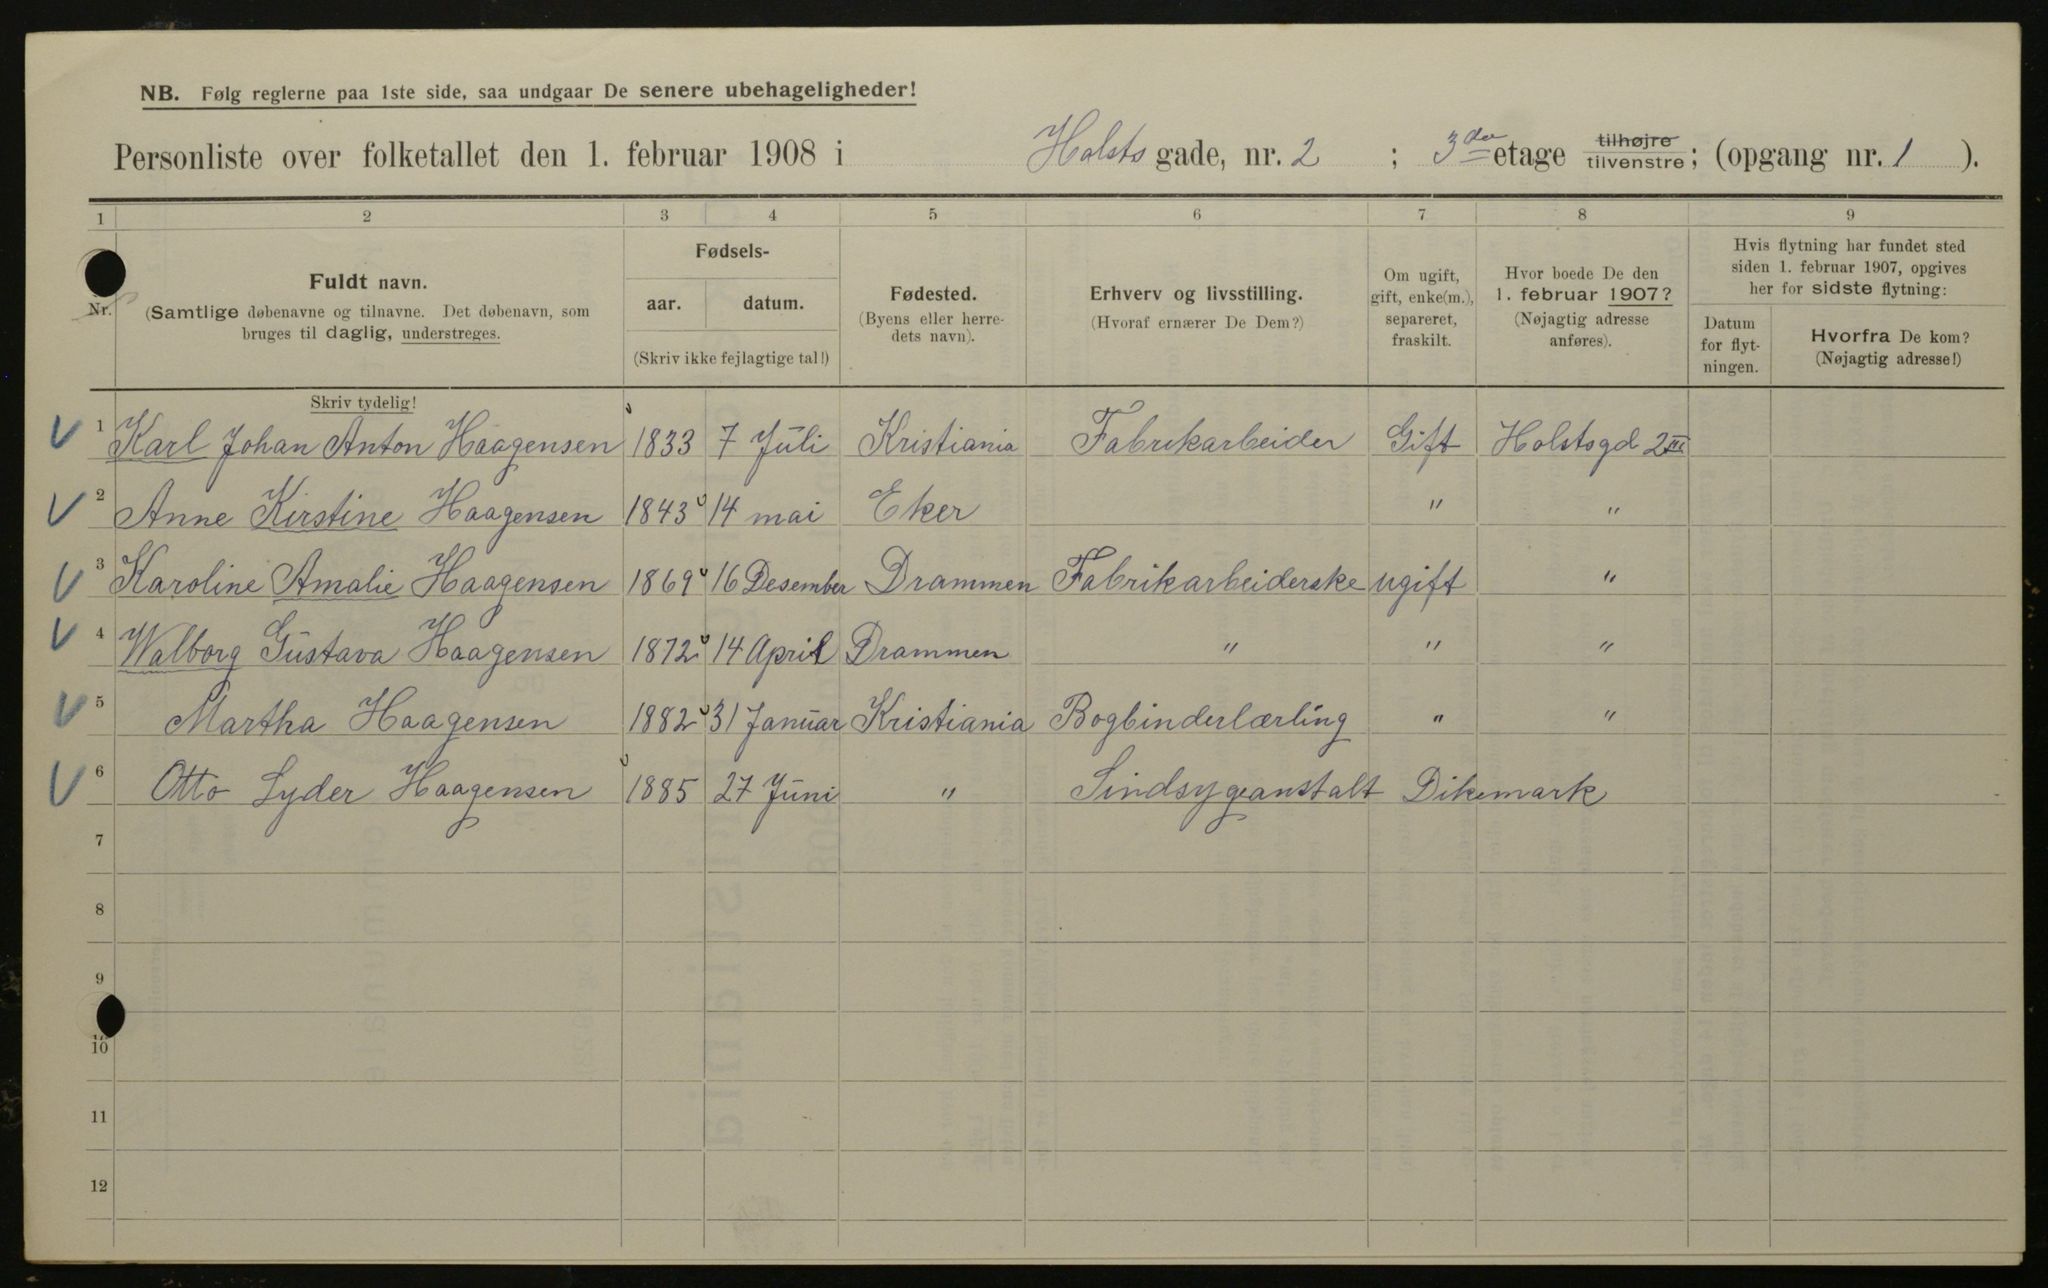 NB. Følg reglerne paa 1ste side, saa undgaar De senere ubehageligheder!
Personliste over folketallet den 1. februar 1908 i Holsts gade, nr. 2 ; 3de etage tilhøjre tilvenstre; (opgang nr. 1 ).
1 2 3 4 5 6 7 8 9
Nr.
Fuldt navn.
(Samtlige døbenavne og tilnavne. Det døbenavn, som
bruges til daglig, understreges.
Skriv tydelig!
Fødsels-
aar. datum.
(Skriv ikke fejlagtige tal!)
Fødested.
(Byens eller herre-
dets navn).
Erhverv og livsstilling.
(Hvoraf ernærer De Dem?)
Om ugift,
gift, enke(m.),
separeret,
fraskilt.
Hvor boede De den
1. februar 1907?
(Nøjagtig adresse
anføres).
Hvis flytning har fundet sted
siden 1. februar 1907, opgives
her for sidste flytning:
Datum
for flyt-
ningen.
Hvorfra De kom?
(Nøjagtig adresse!)
1 Karl Johan Anton Haagensen 1833 7 Juli Kristiania Fabrikarbeider Gift Holstsgd 2 III
2 Anne Kirstine Haagensen 1843 14 mai Eker " "
3 Karoline Amalie Haagensen 1869 16 Desember Drammen Fabrikarbeiderske ugift "
4 Walborg Gustava Haagensen 1872 14 April Drammen " " "
5 Martha Haagensen 1882 31 Januar Kristiania Bogbinderlærling " "
6 Otto Lyder Haagensen 1885 27 Juni " Sindsygeanstalt Dikemark
7
8
9
10
11
12